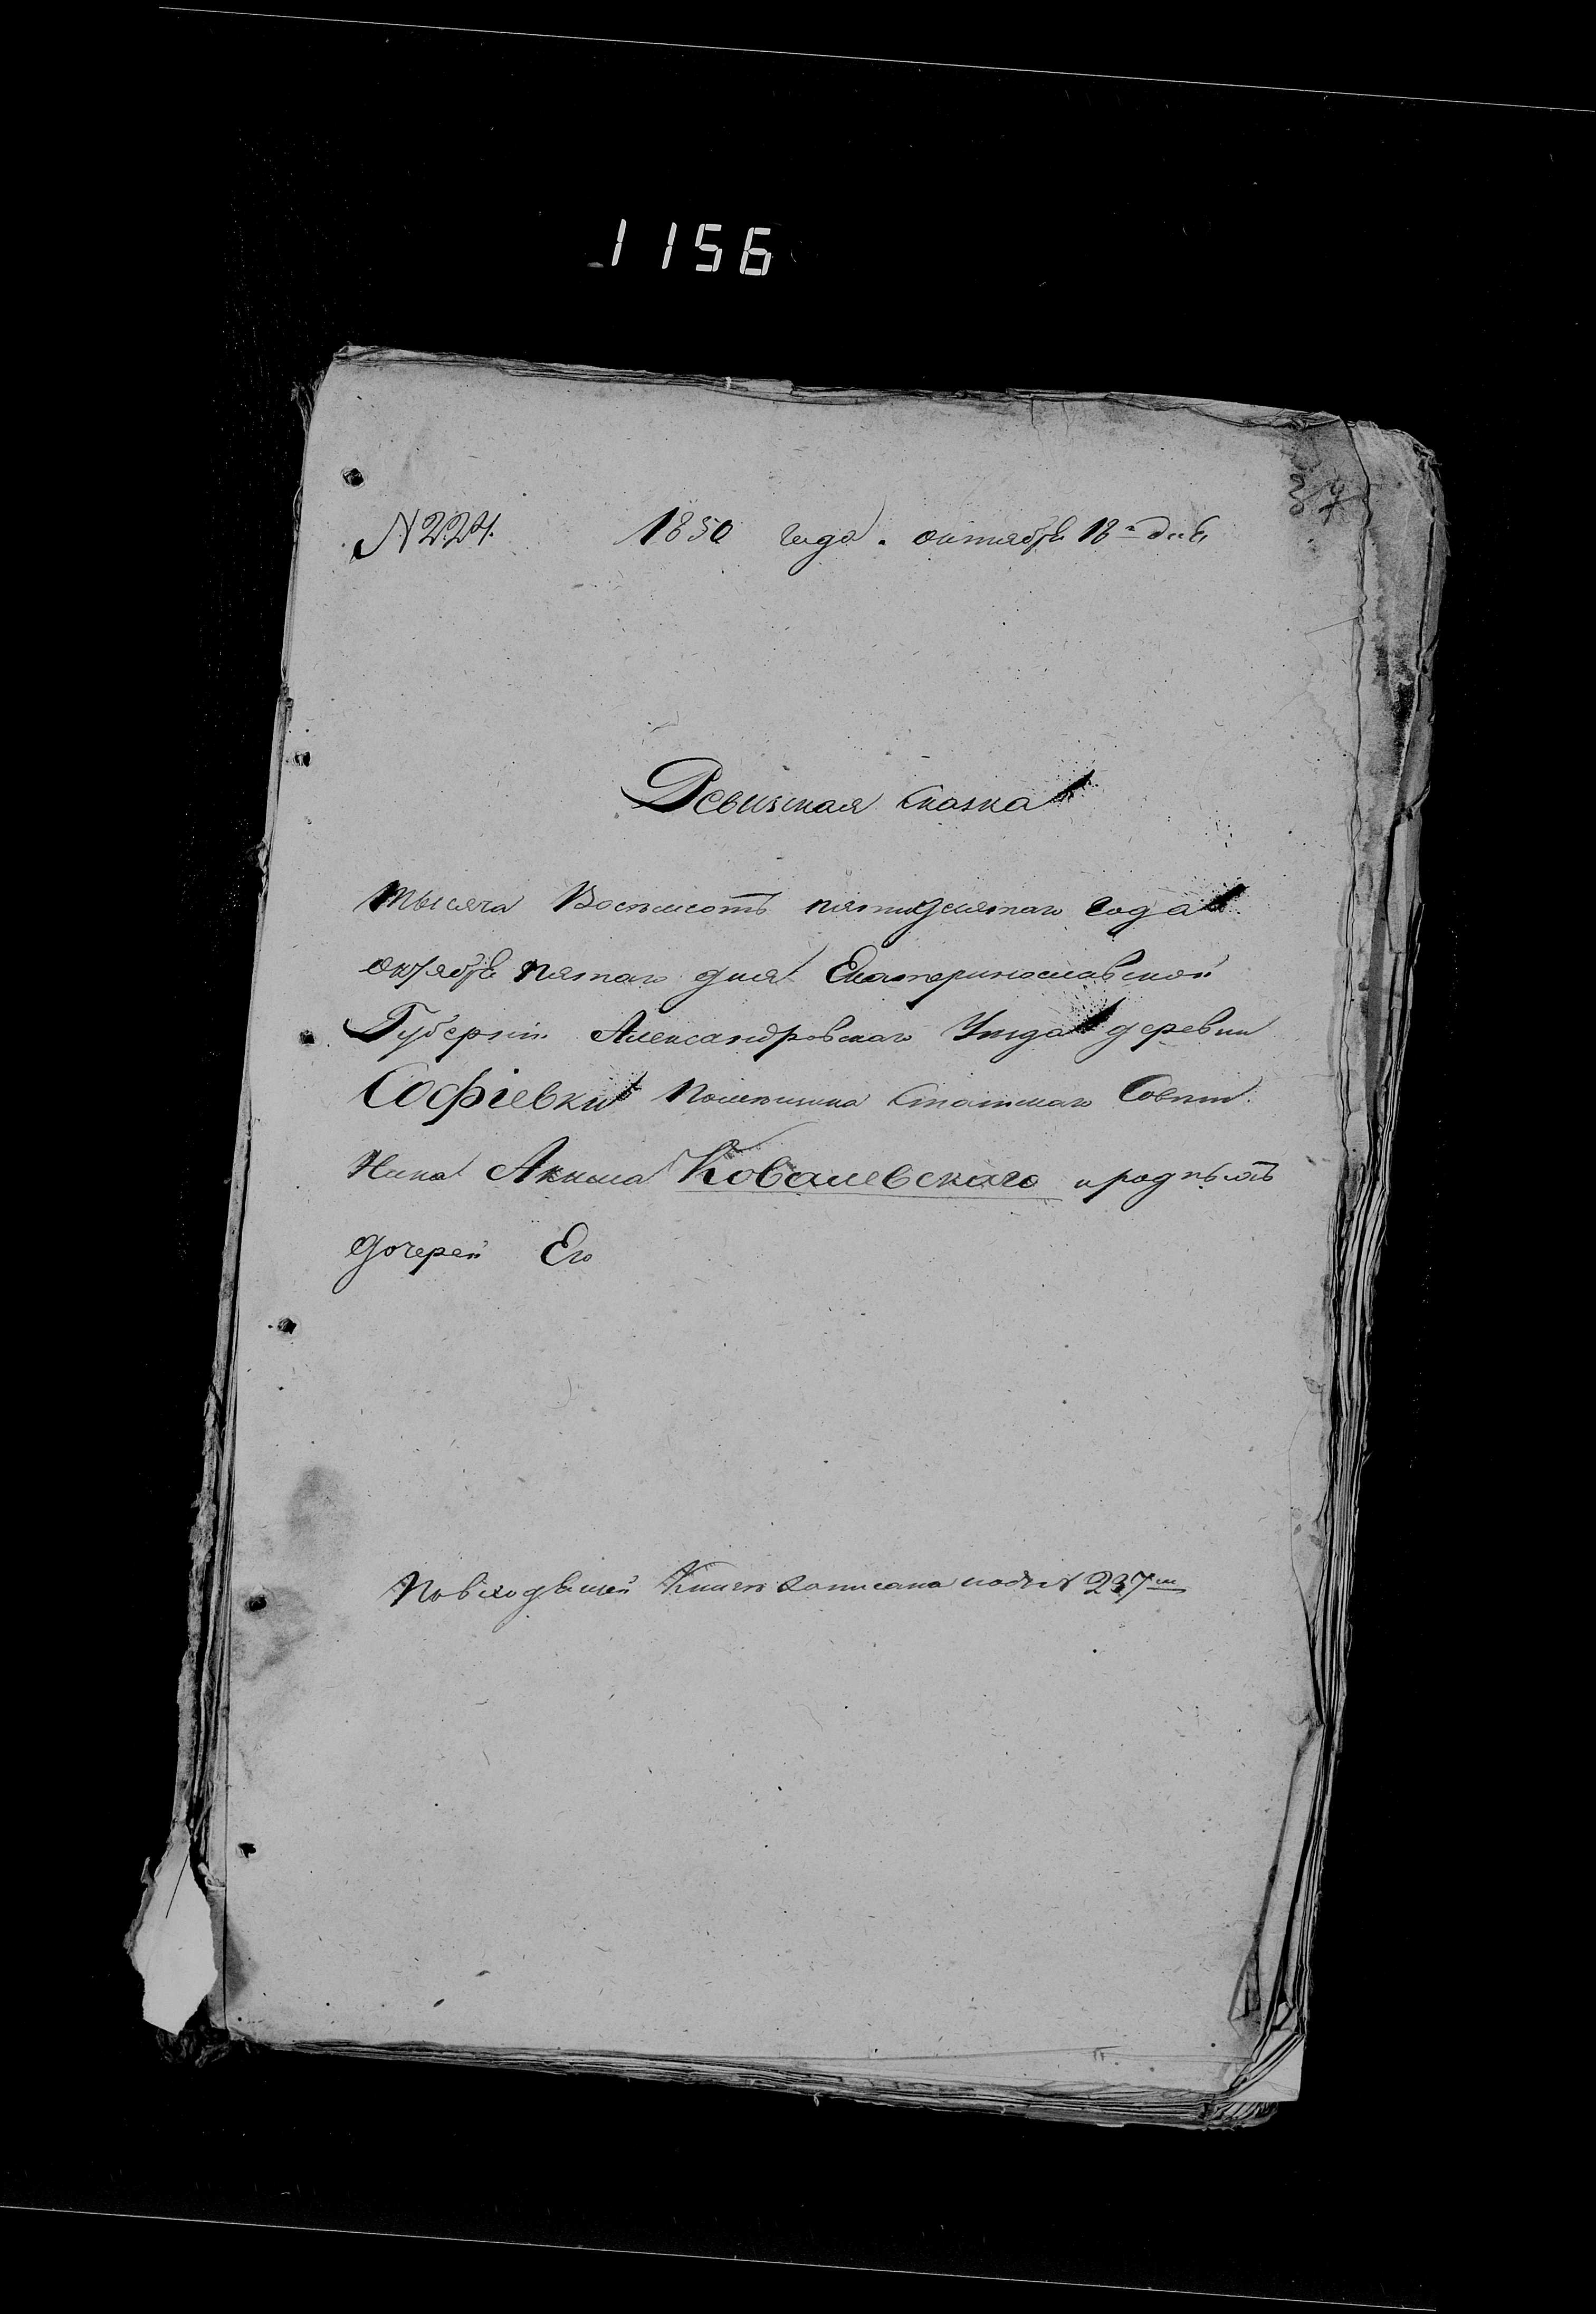 1156
№ 224. 1850 года. октября 18го дня
Ревизская Сказка
Тысяча Восемьсотъ пятидесятаго года
октября пятаго дня Екатеринославской
Губернiи Александровскаго Уезда деревни
Софiевки Помещика Статскаго Совет
Ника Акима Ковалевскаго и родныхъ
дочерей Его
По входящей Книге записана под № 237м